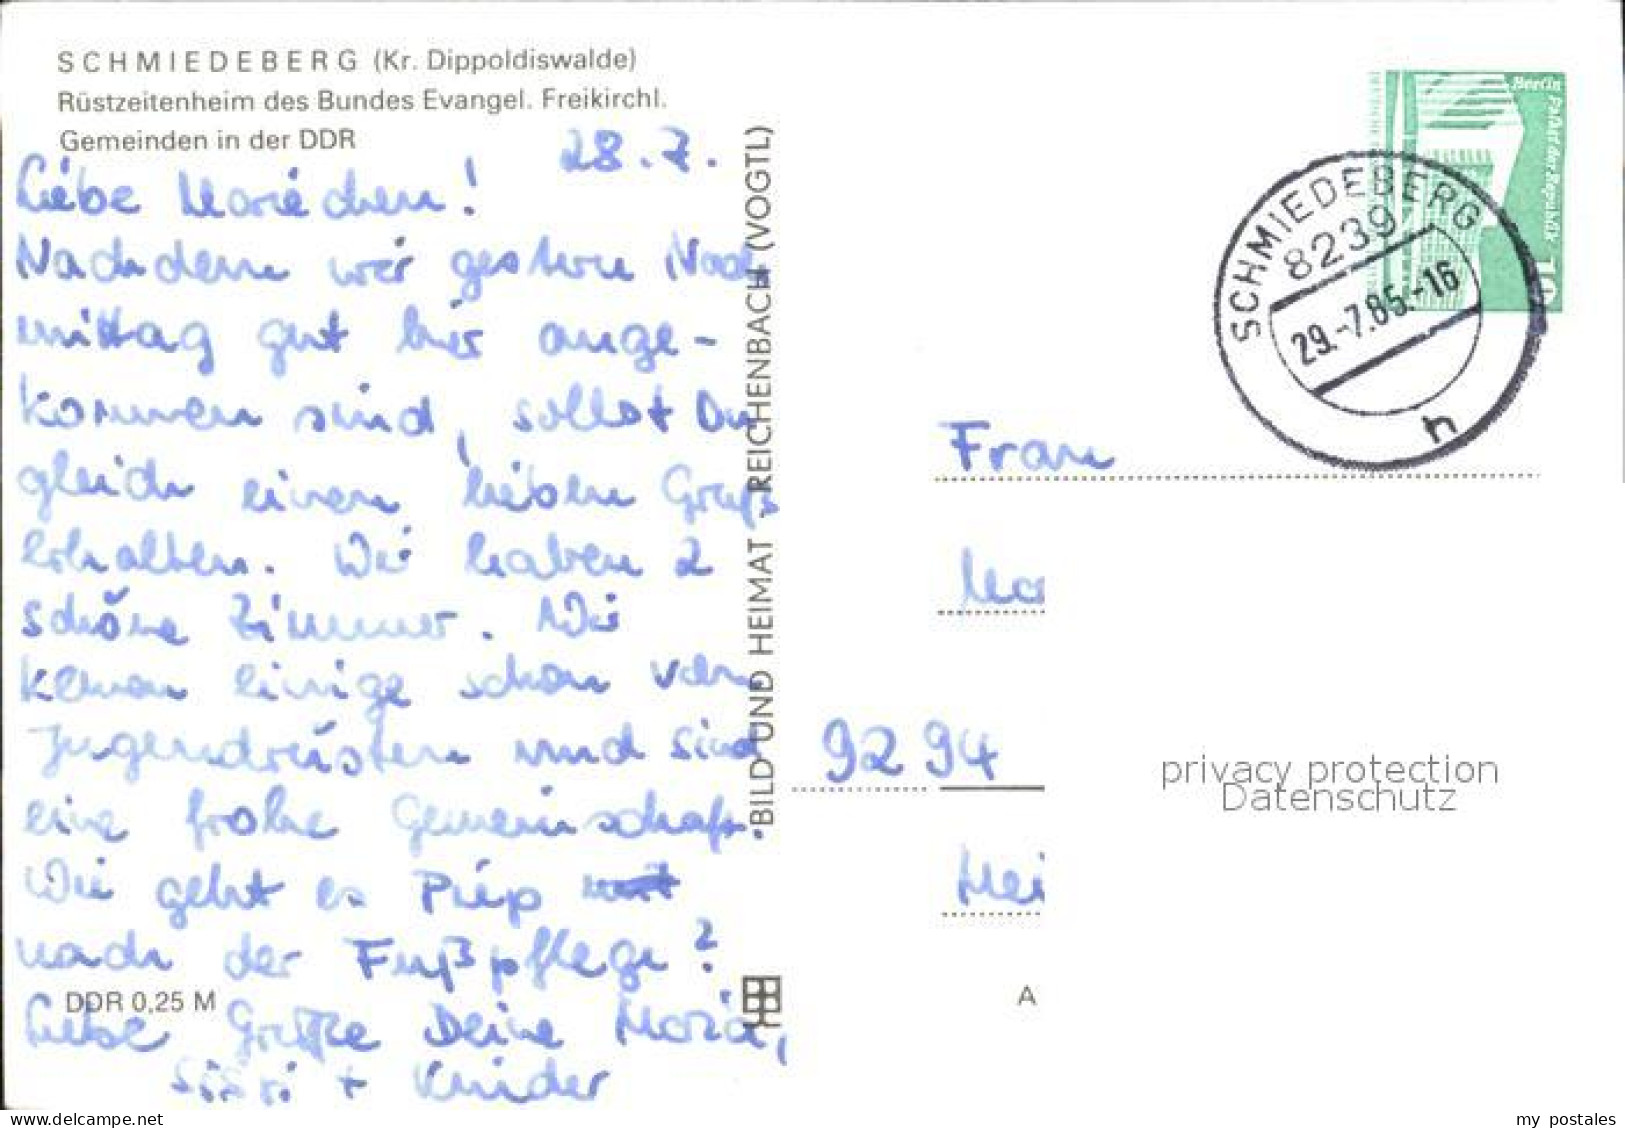 SCHMIEDEBERG (Kr. Dippoldiswalde)
Rüstzeitenheim des Bundes Evangel. Freikirchl.
Gemeinden in der DDR
28.7.
Liebe Mariechen!
Nachdem wir gestern Nach
mittag gut hier ange-
kommen sind, sollst Du
gleich einen lieben Gruß
erhalten. Wir haben 2
schöne Zimmer. Wir
kennen einige schon von
Jugendrüsten und sind
eine frohe Gemeinschaft.
Wie geht es
nach der Fußpflege?
Liebe Grüße Deine Maria,
+ Kinder
DDR 0,25 M
BILD UND HEIMAT REICHENBACH (VOGTL)
Berlin Palast der Republik
10
SCHMIEDEBERG
8239
29.-7.85.-16
h
Frau
Ma
9294
Mei
privacy protection
Datenschutz
A
delcampe.net
my_postales